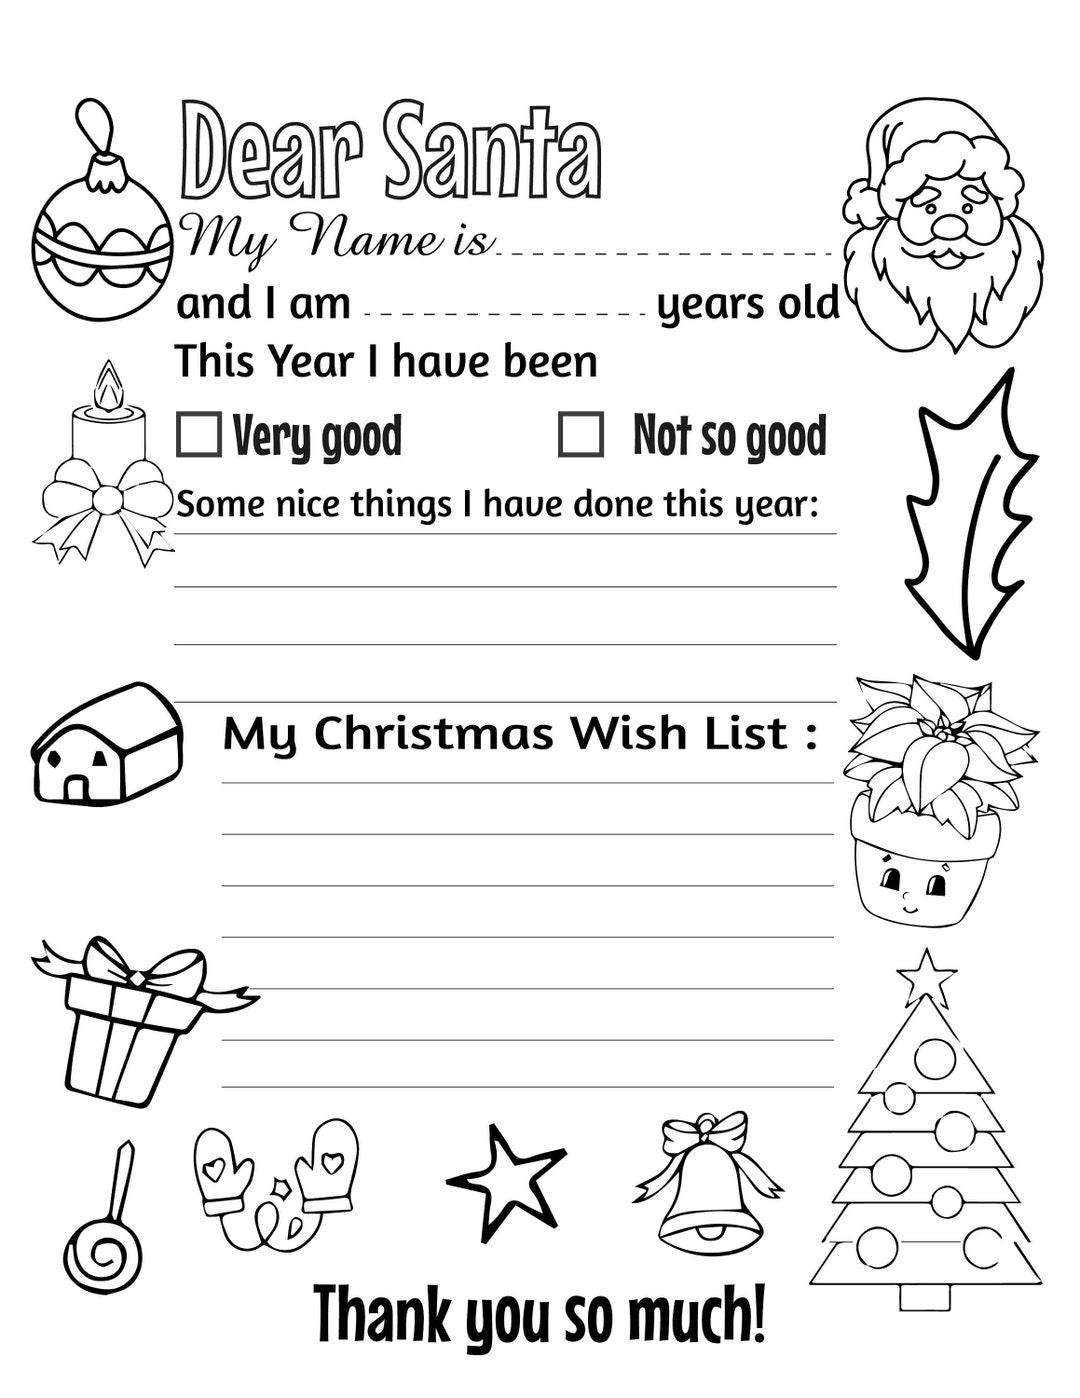 Dear Santa
My Name is
and I am years old
This Year I have been
Very good Not so good
Some nice things I have done this year:
My Christmas Wish List :
Thank you so much!